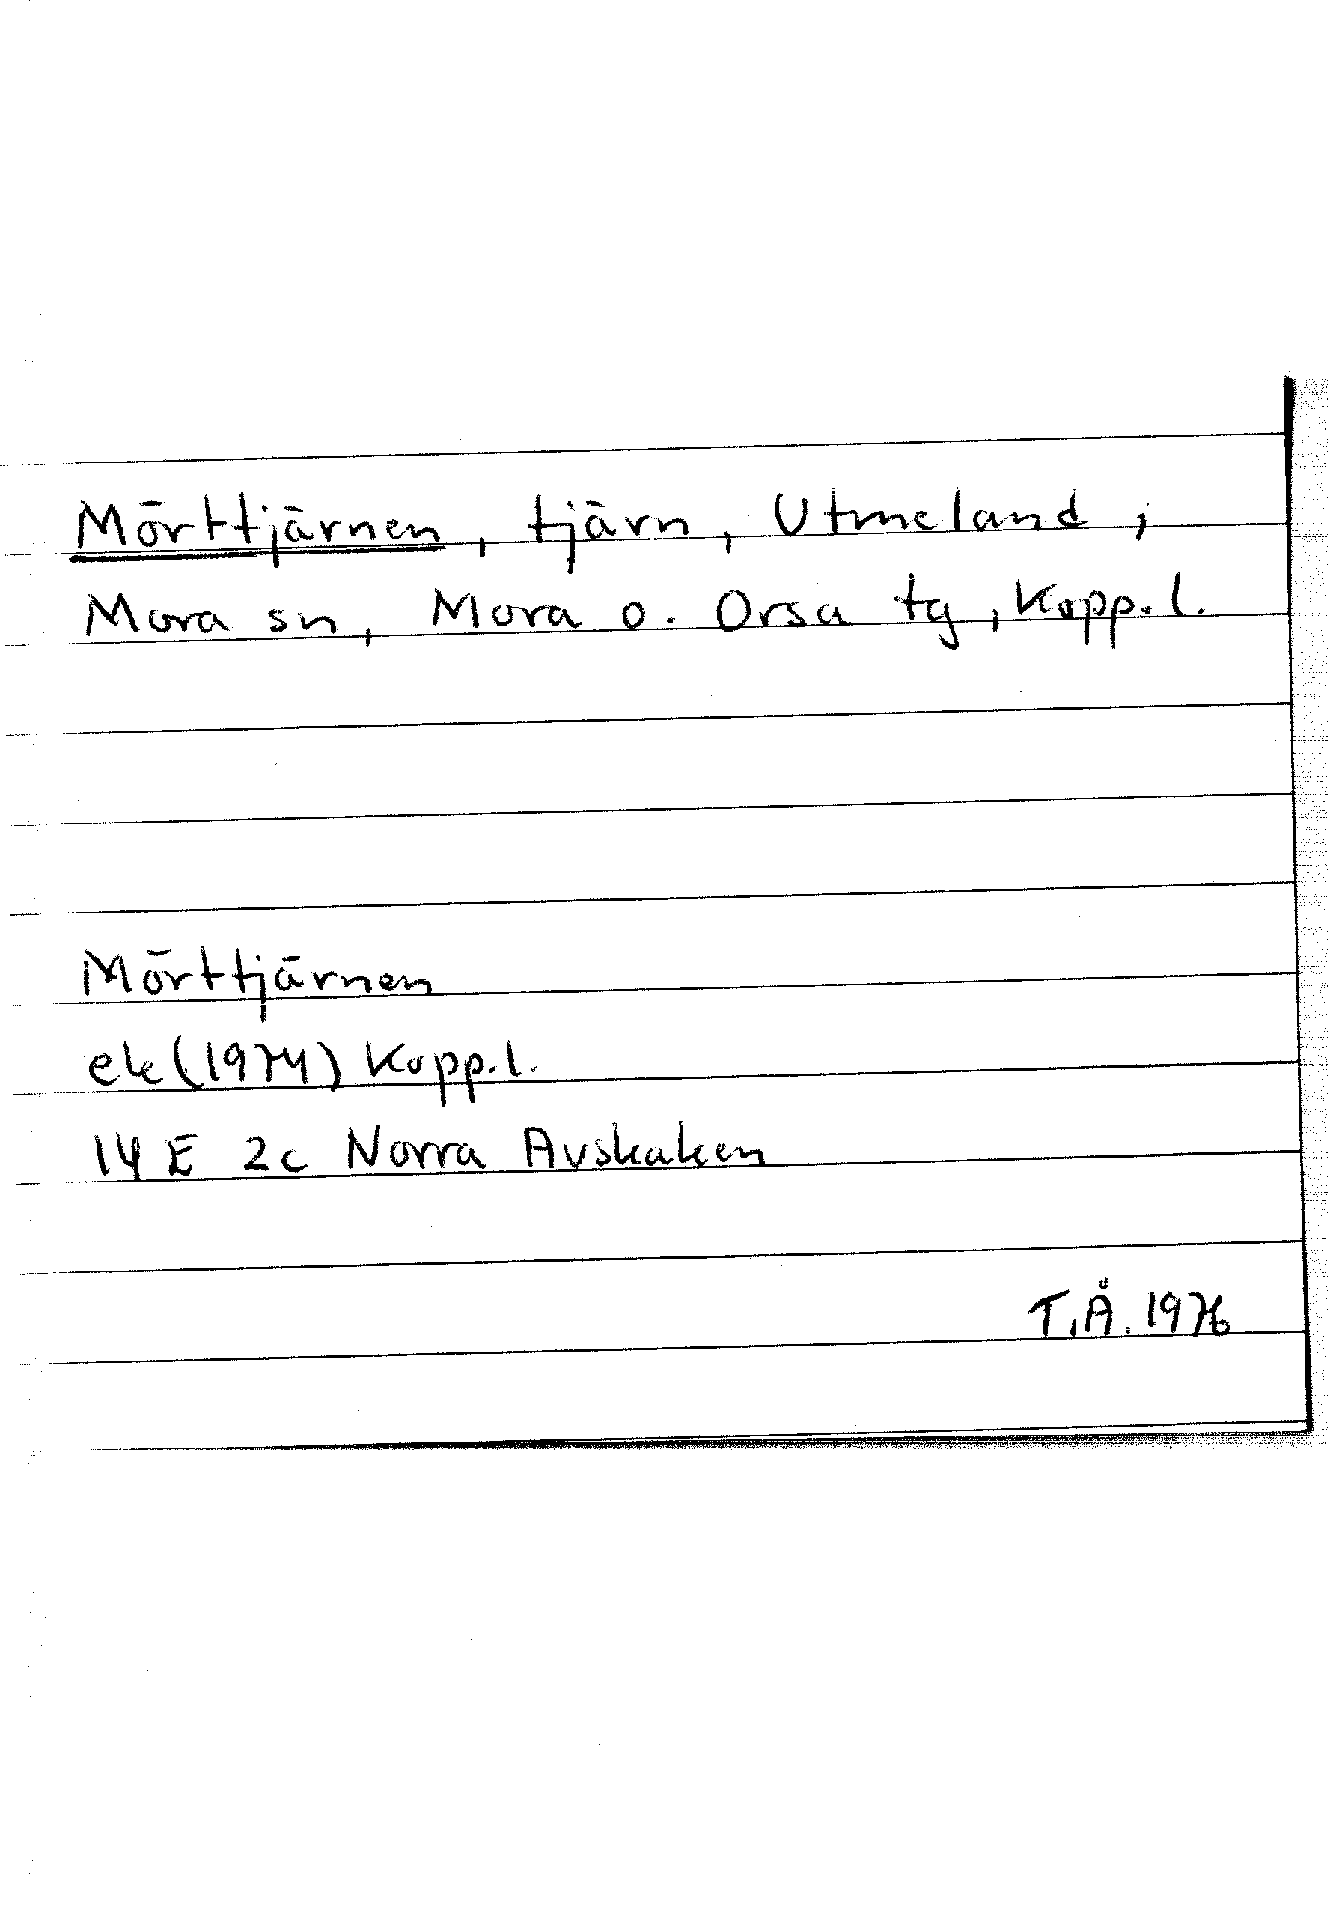 Mörttjärnen, tjärn, Utmeland;
Mora sn, Mora o. Orsa tg, Kopp.l.
Mörttjärnen
ek (1974) Kopp.l.
14 E 2c Norra Avskaken
T.Å. 1976